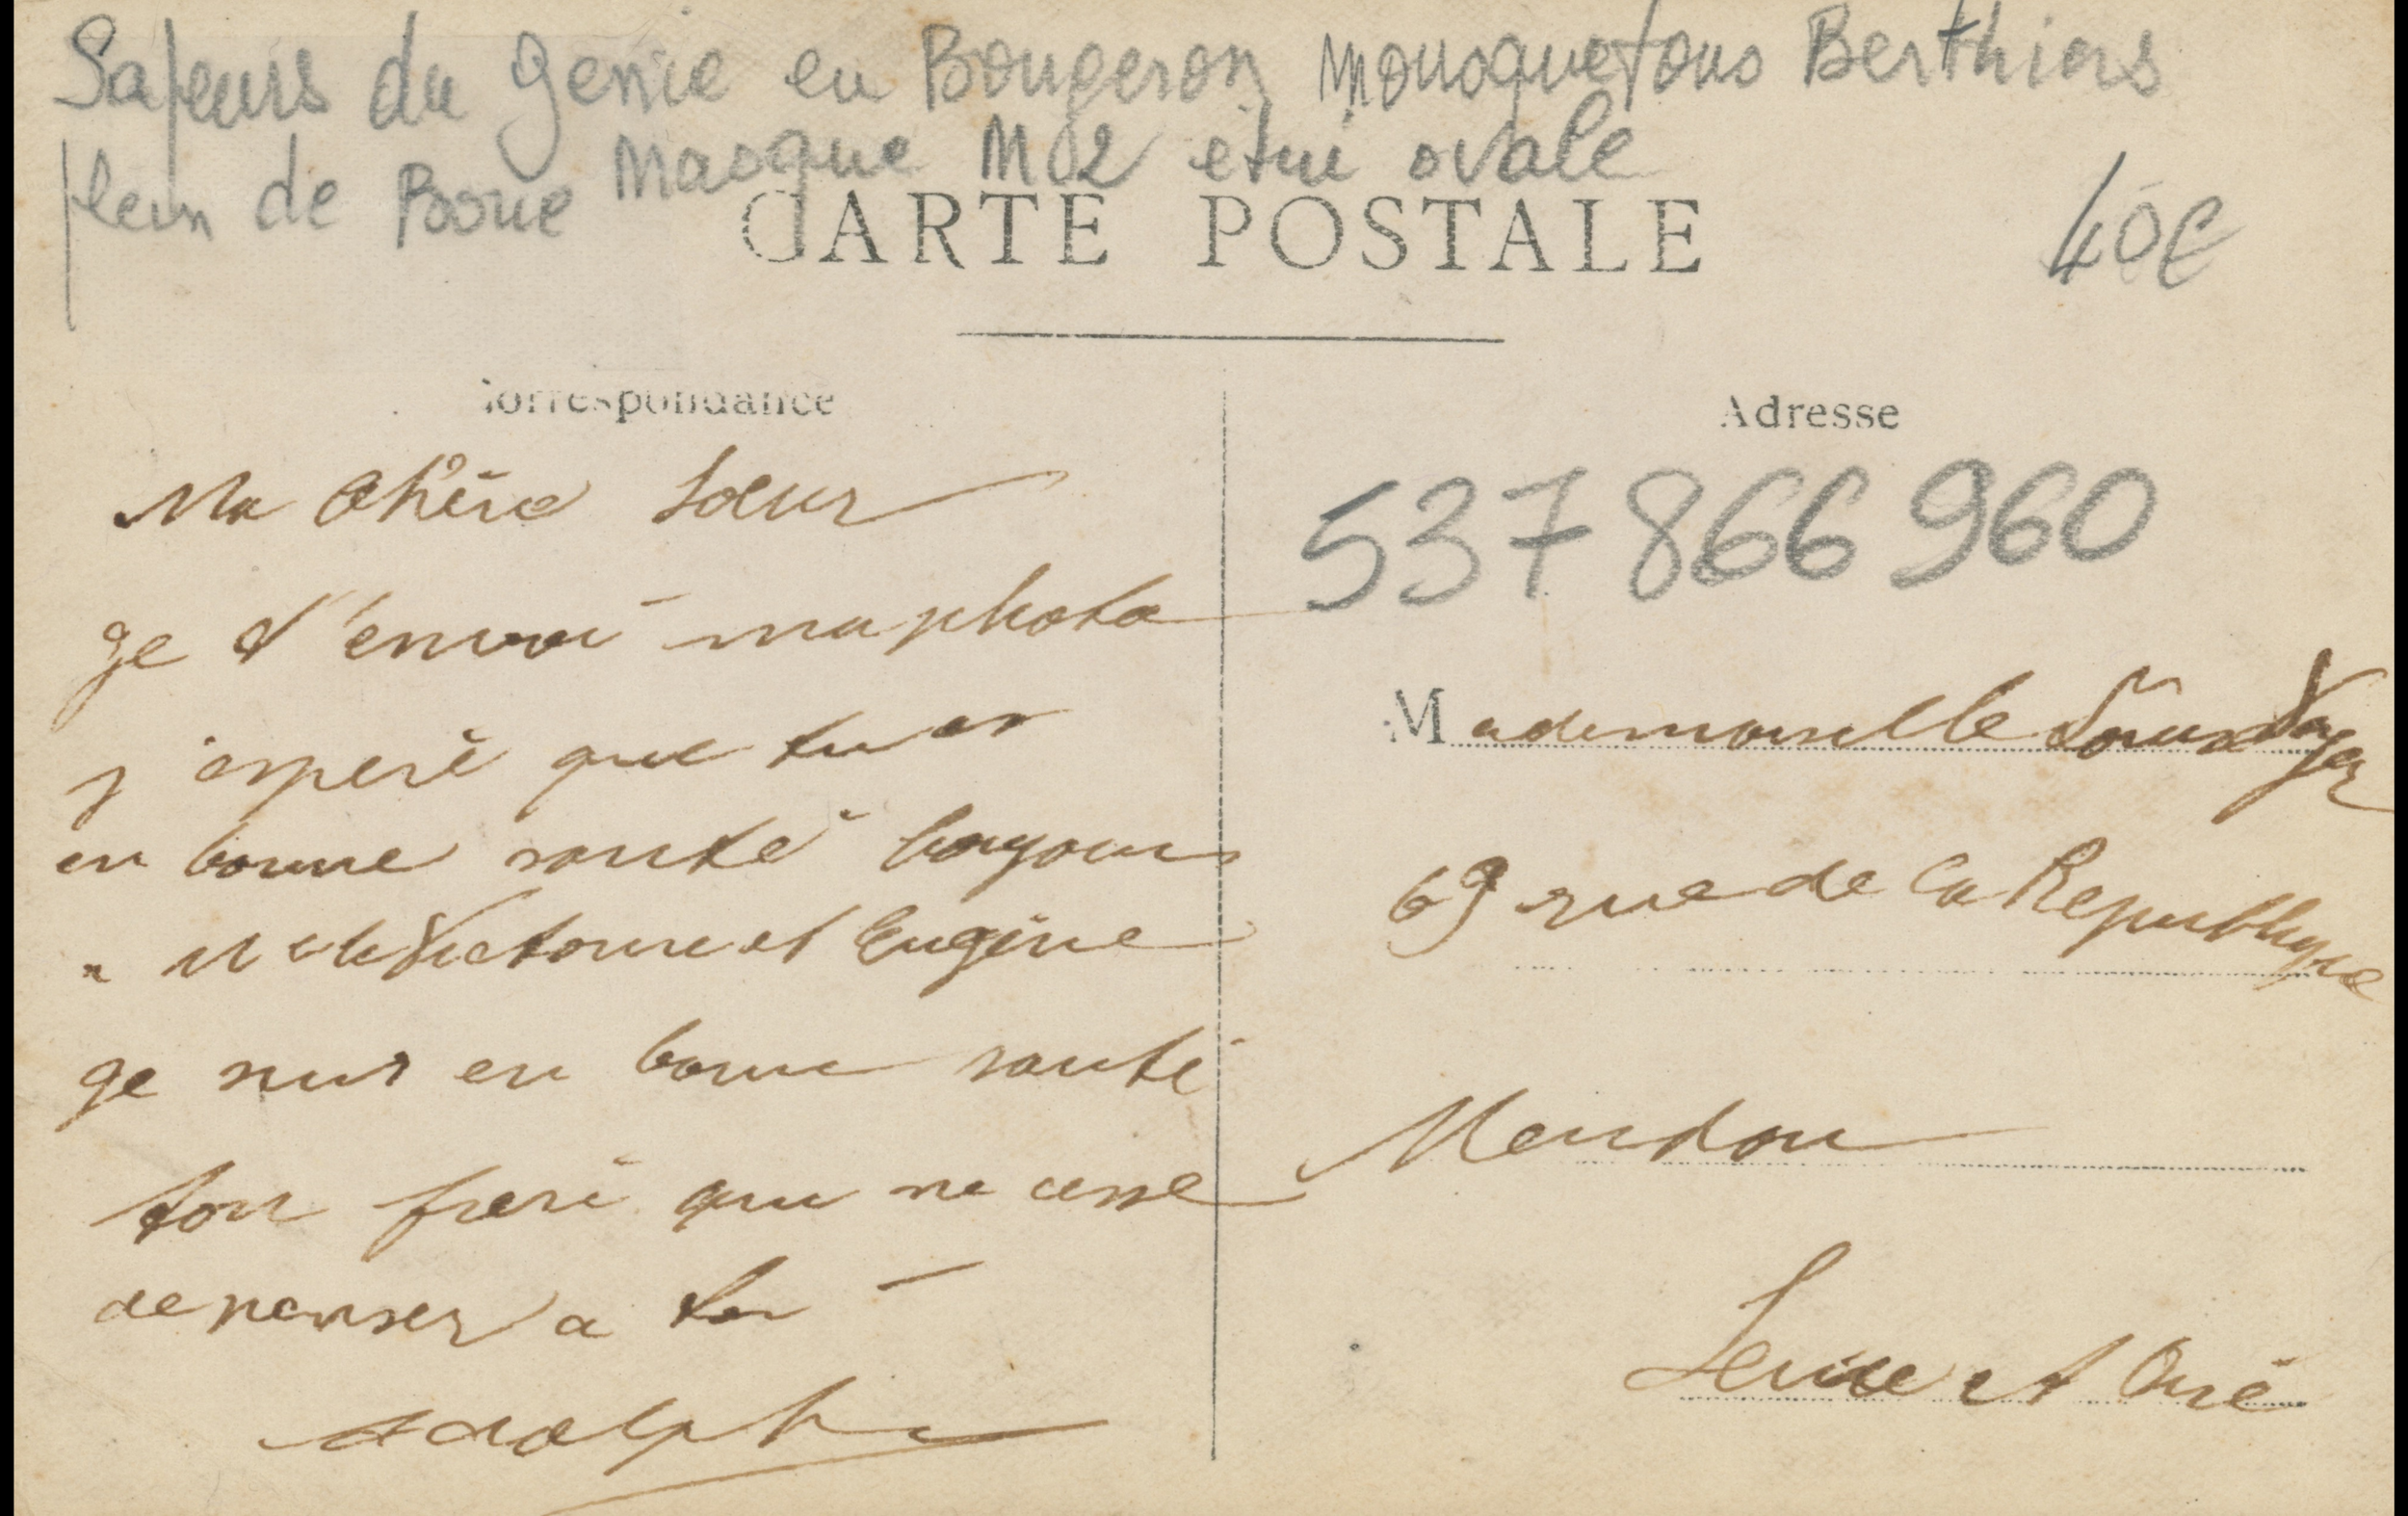 Sapeurs du genie en Bougeron Mousquetons Berthiers
plein de Boue Masque M02 étui ovale
CARTE POSTALE
40€
Correspondance
Adresse
537 866 960
Ma Chère Soeur
Je t'envoi ma photo
j'esperè que tu es
en bonne santé
Victorine et Eugène
ge suis en bonne santé
ton frerè qui ne cesse
de penser a toi
Adolphe
Mademoiselle
69 rue de la Republique
Meudon
Seine et Oise